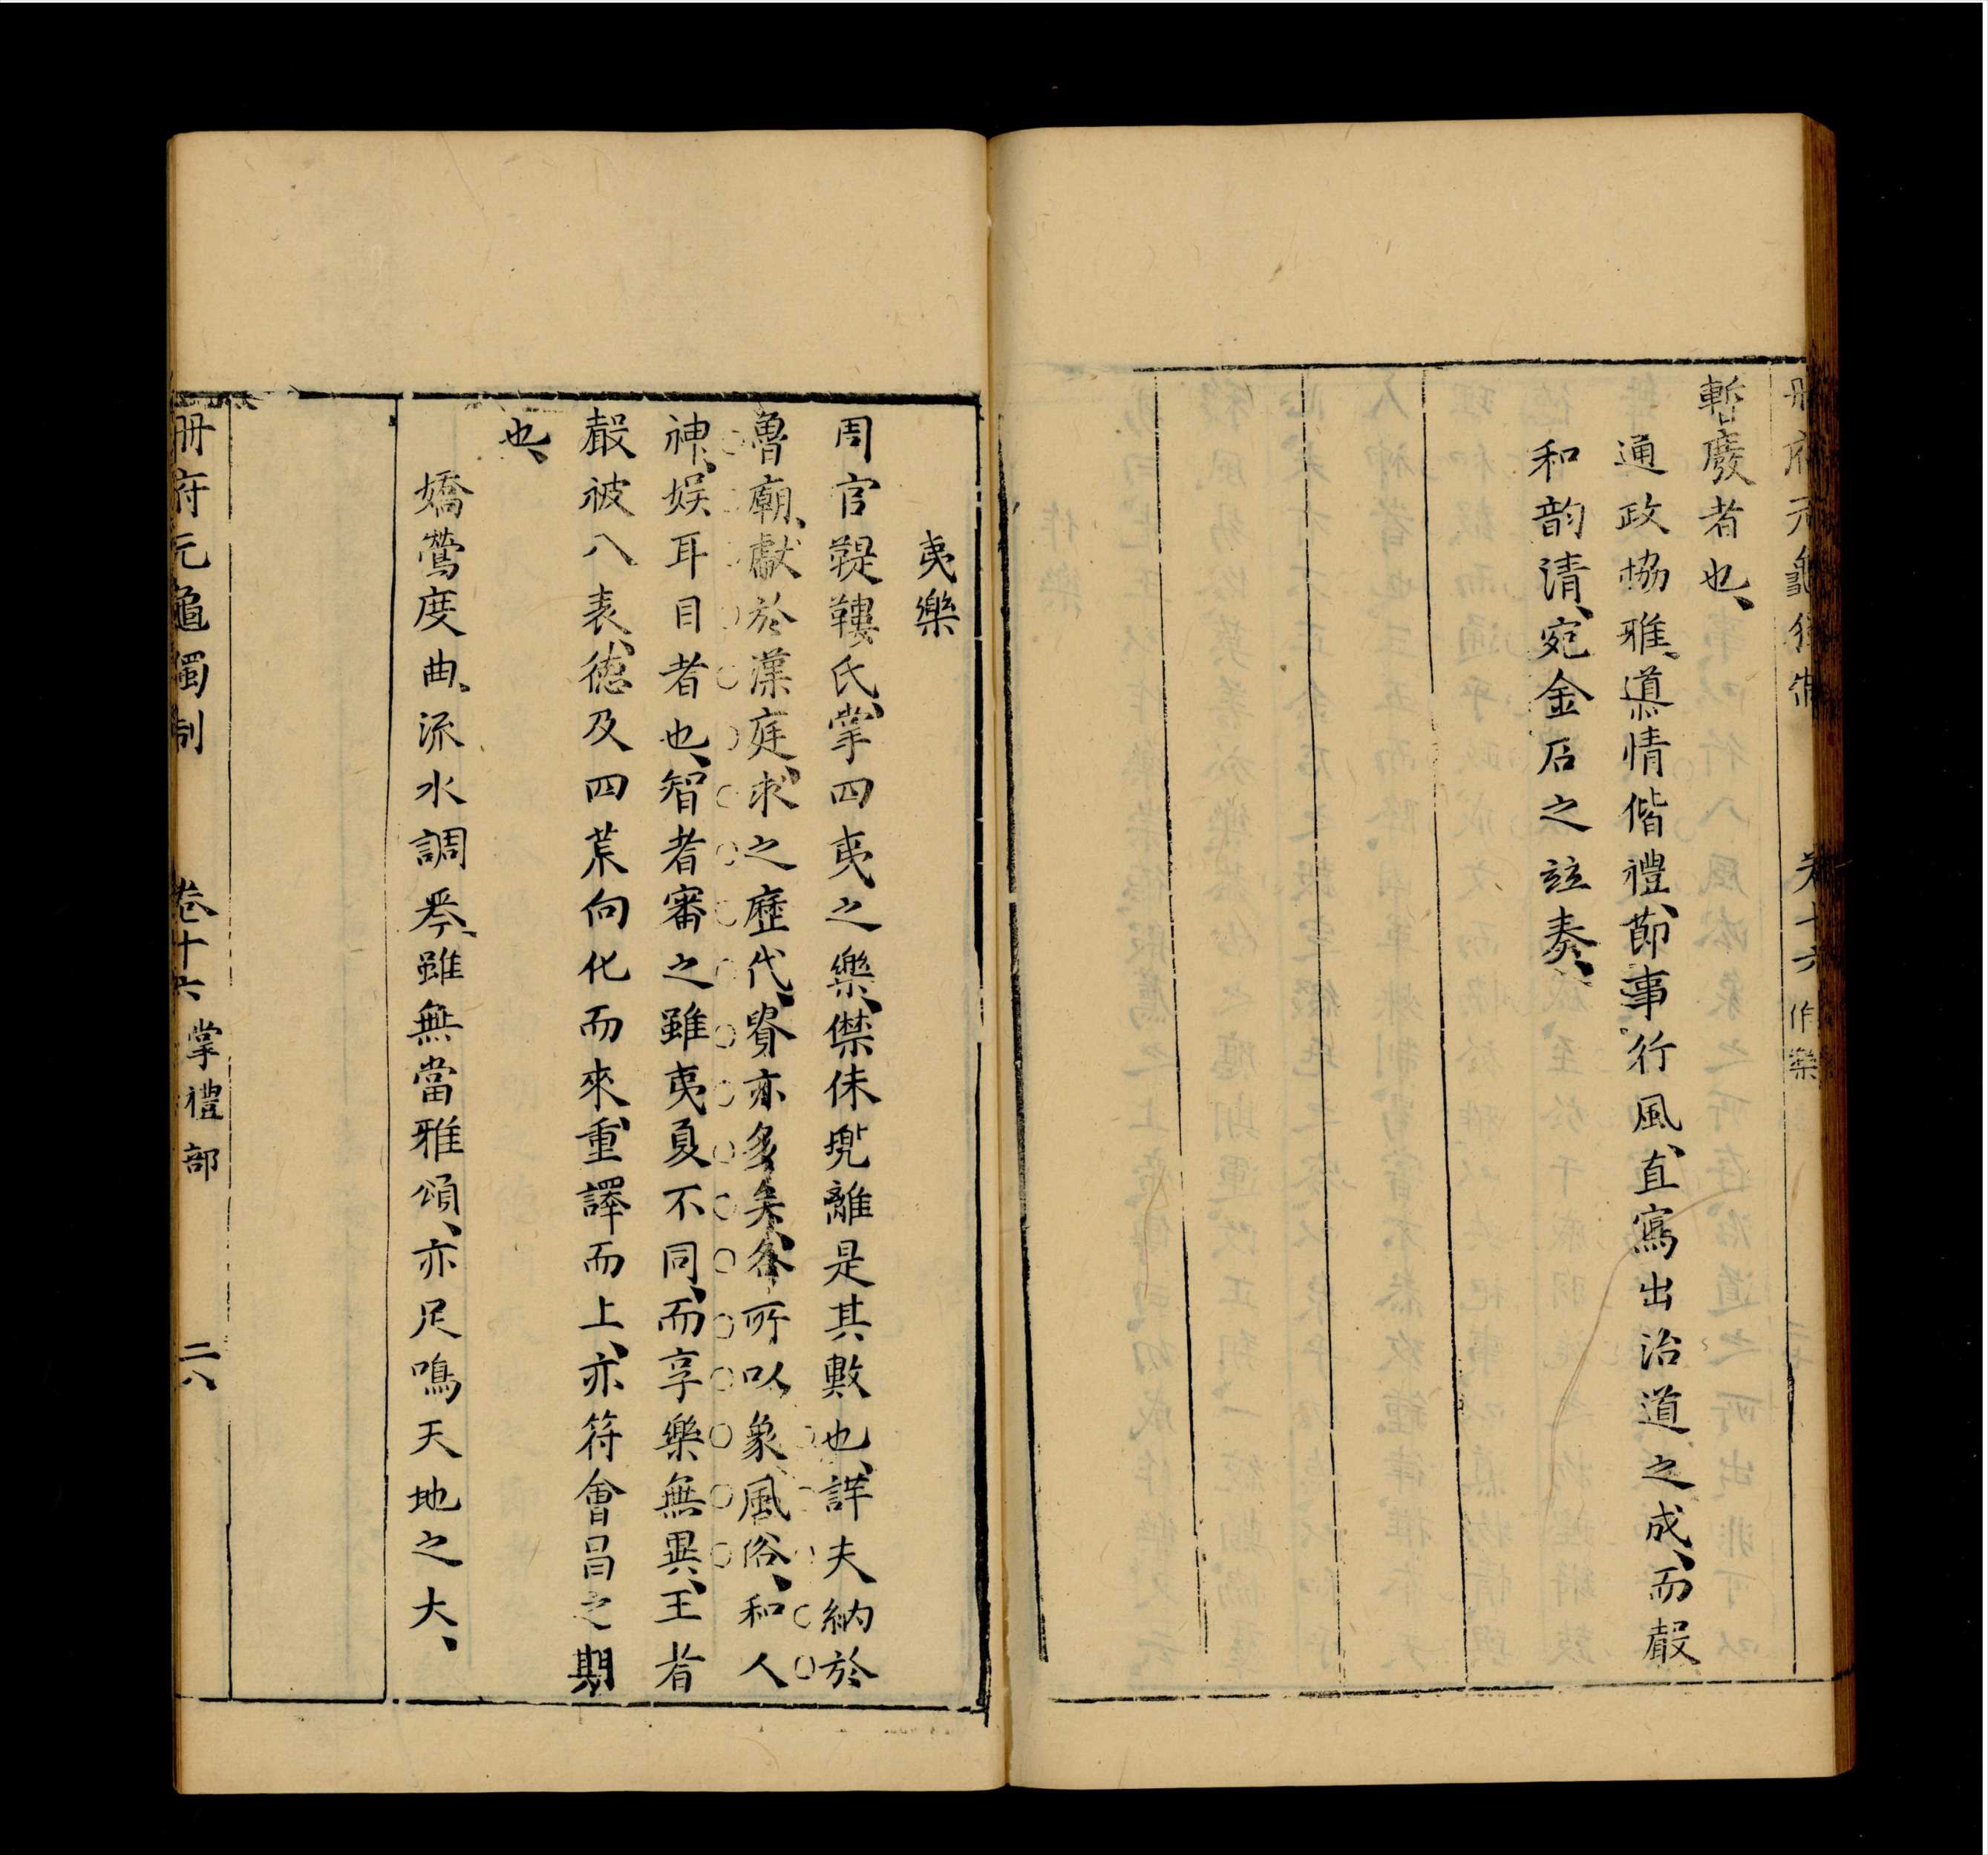 冊府元龜獨制　卷十六　作樂
暫廢者也、
通政協雅、道情偕禮、節事行風、直寫出治道之成、而聲
和韵清、宛金石之竝奏、
夷樂
周官鞮鞻氏、掌四夷之樂、㑣佅兜離是其數也、詳夫納於
魯廟、獻於漢庭、求之歷代、賚亦多矣、各所以象風俗、和人
神、娱耳目者也、智者審之雖夷夏不同、而享樂無異、王者
聲被八表、德及四荒向化而來、重譯而上、亦符會昌之期
也、
嬌鶯度曲、流水調琴、雖無當雅頌、亦足鳴天地之大、
冊府元龜獨制　卷十六　掌禮部　二八